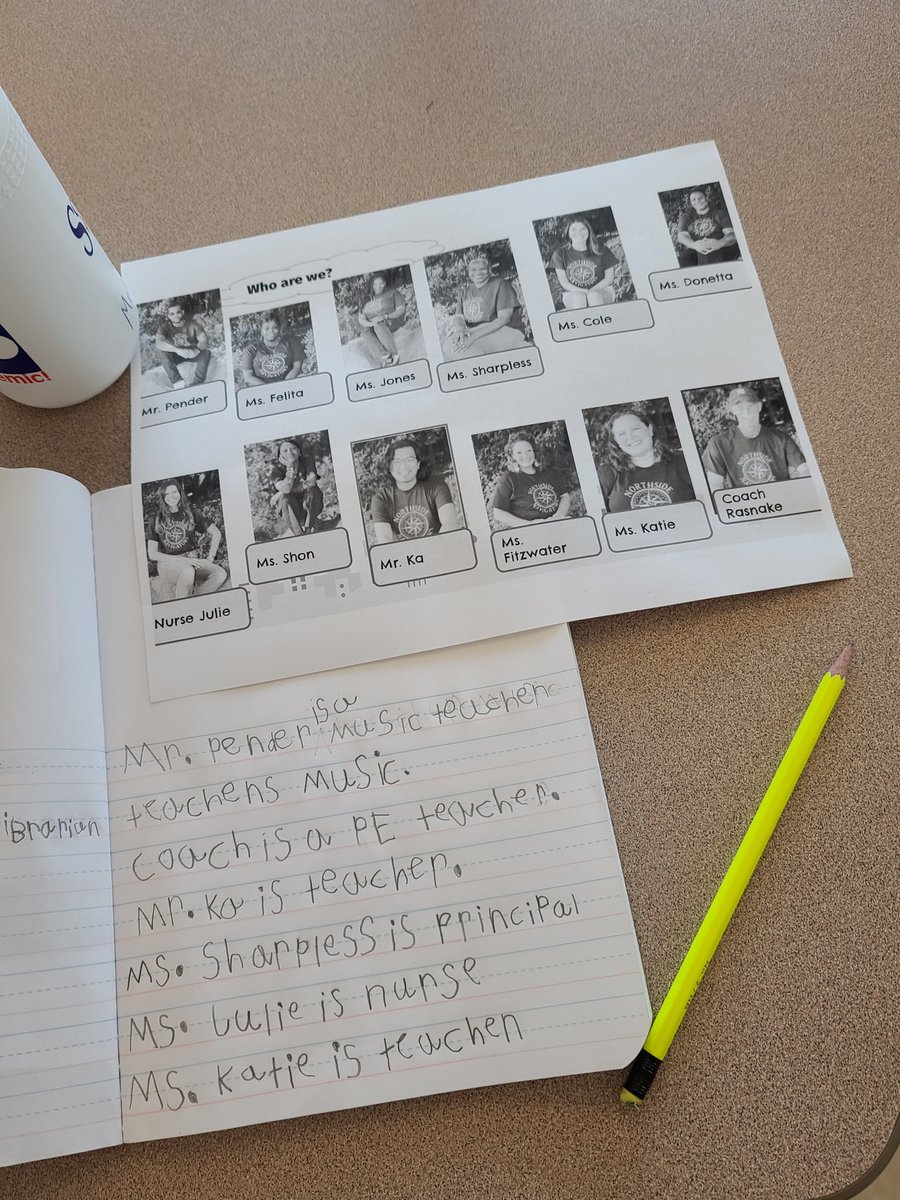 Who are we?
Mr. Pender
Ms. Felita
Ms. Jones
Ms. Sharpless
Ms. Cole
Ms. Donetta
Nurse Julie
Ms. Shon
Mr. Ka
Ms.
Fitzwater
Ms. Katie
Coach
Rasnake
NORTHSIDE
NORTHSIDE
NORTHSIDE
omic!
ibrarian
is a
Mr. Pender music teacher
teachers music.
coach is a PE teacher.
Mr. Ka is teacher.
MS. Sharpless is principal
MS. Lulie is nurse
MS. Katie is teacher